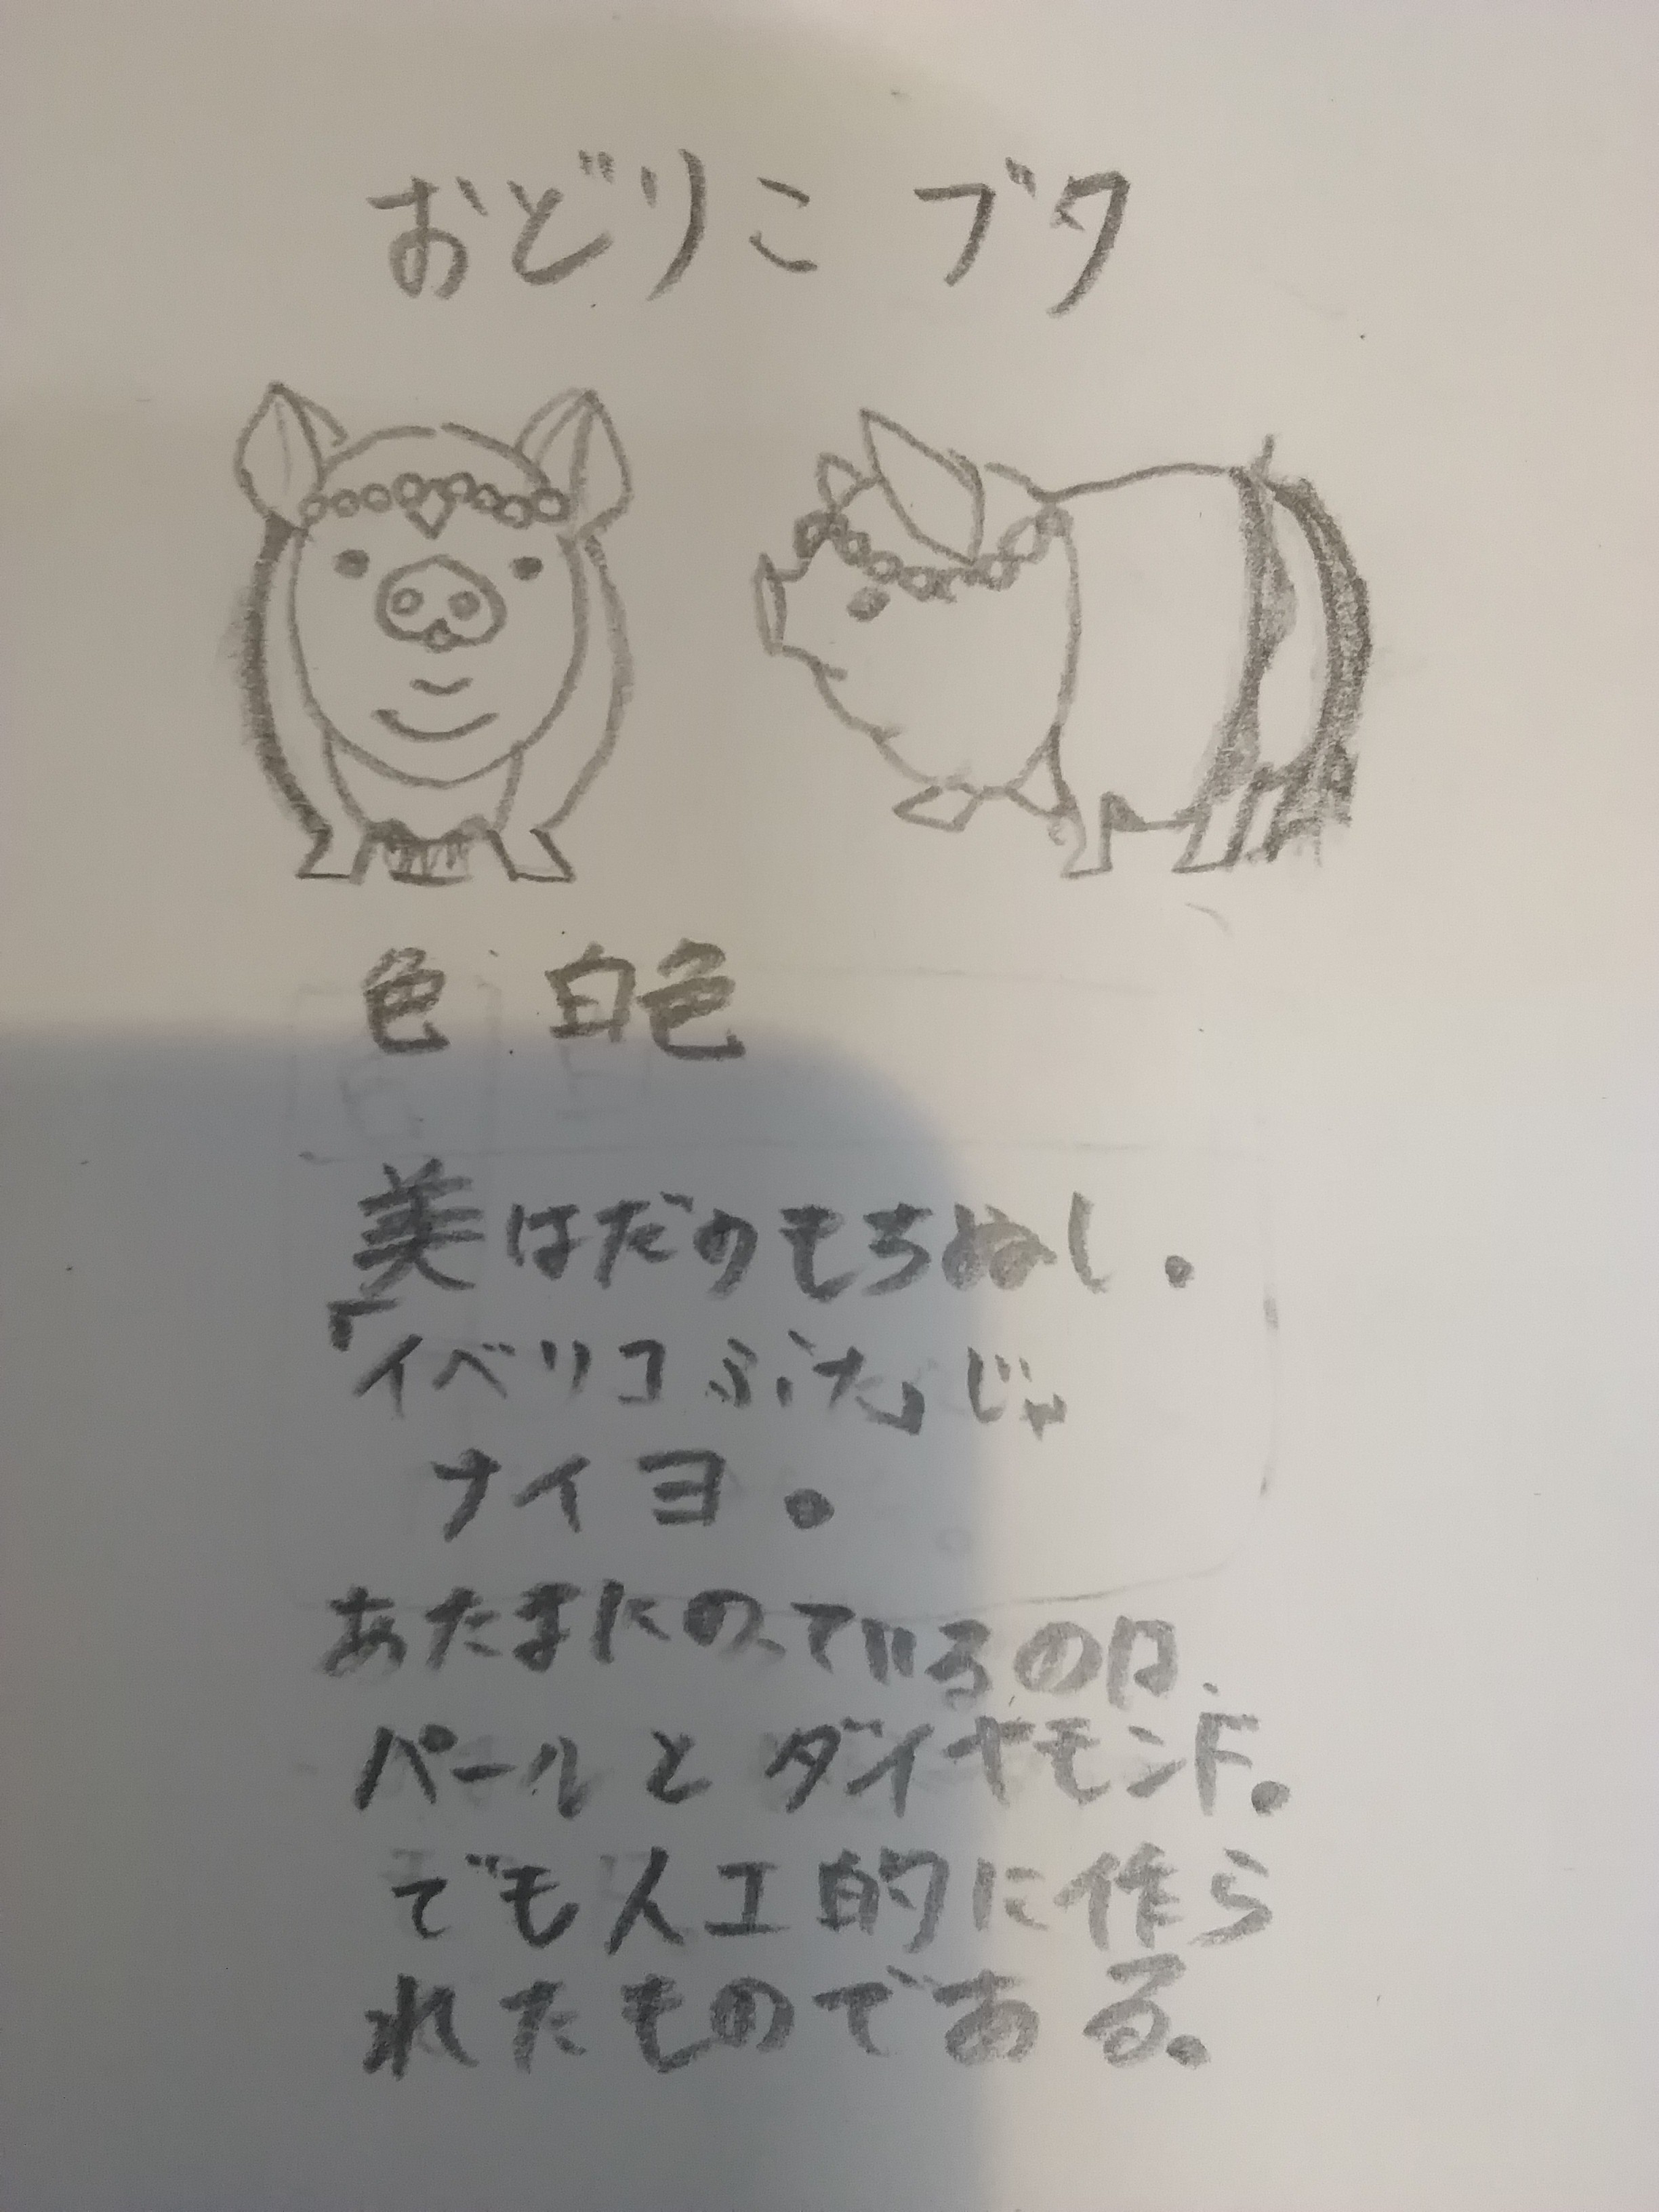 おどりこ ブタ
色 白色
美はだのもちぬし。
「イベリコぶた」じゃ
ナイヨ。
あたまにのっているのは、
パールとダイヤモンド。
でも人工的に作ら
れたものである。